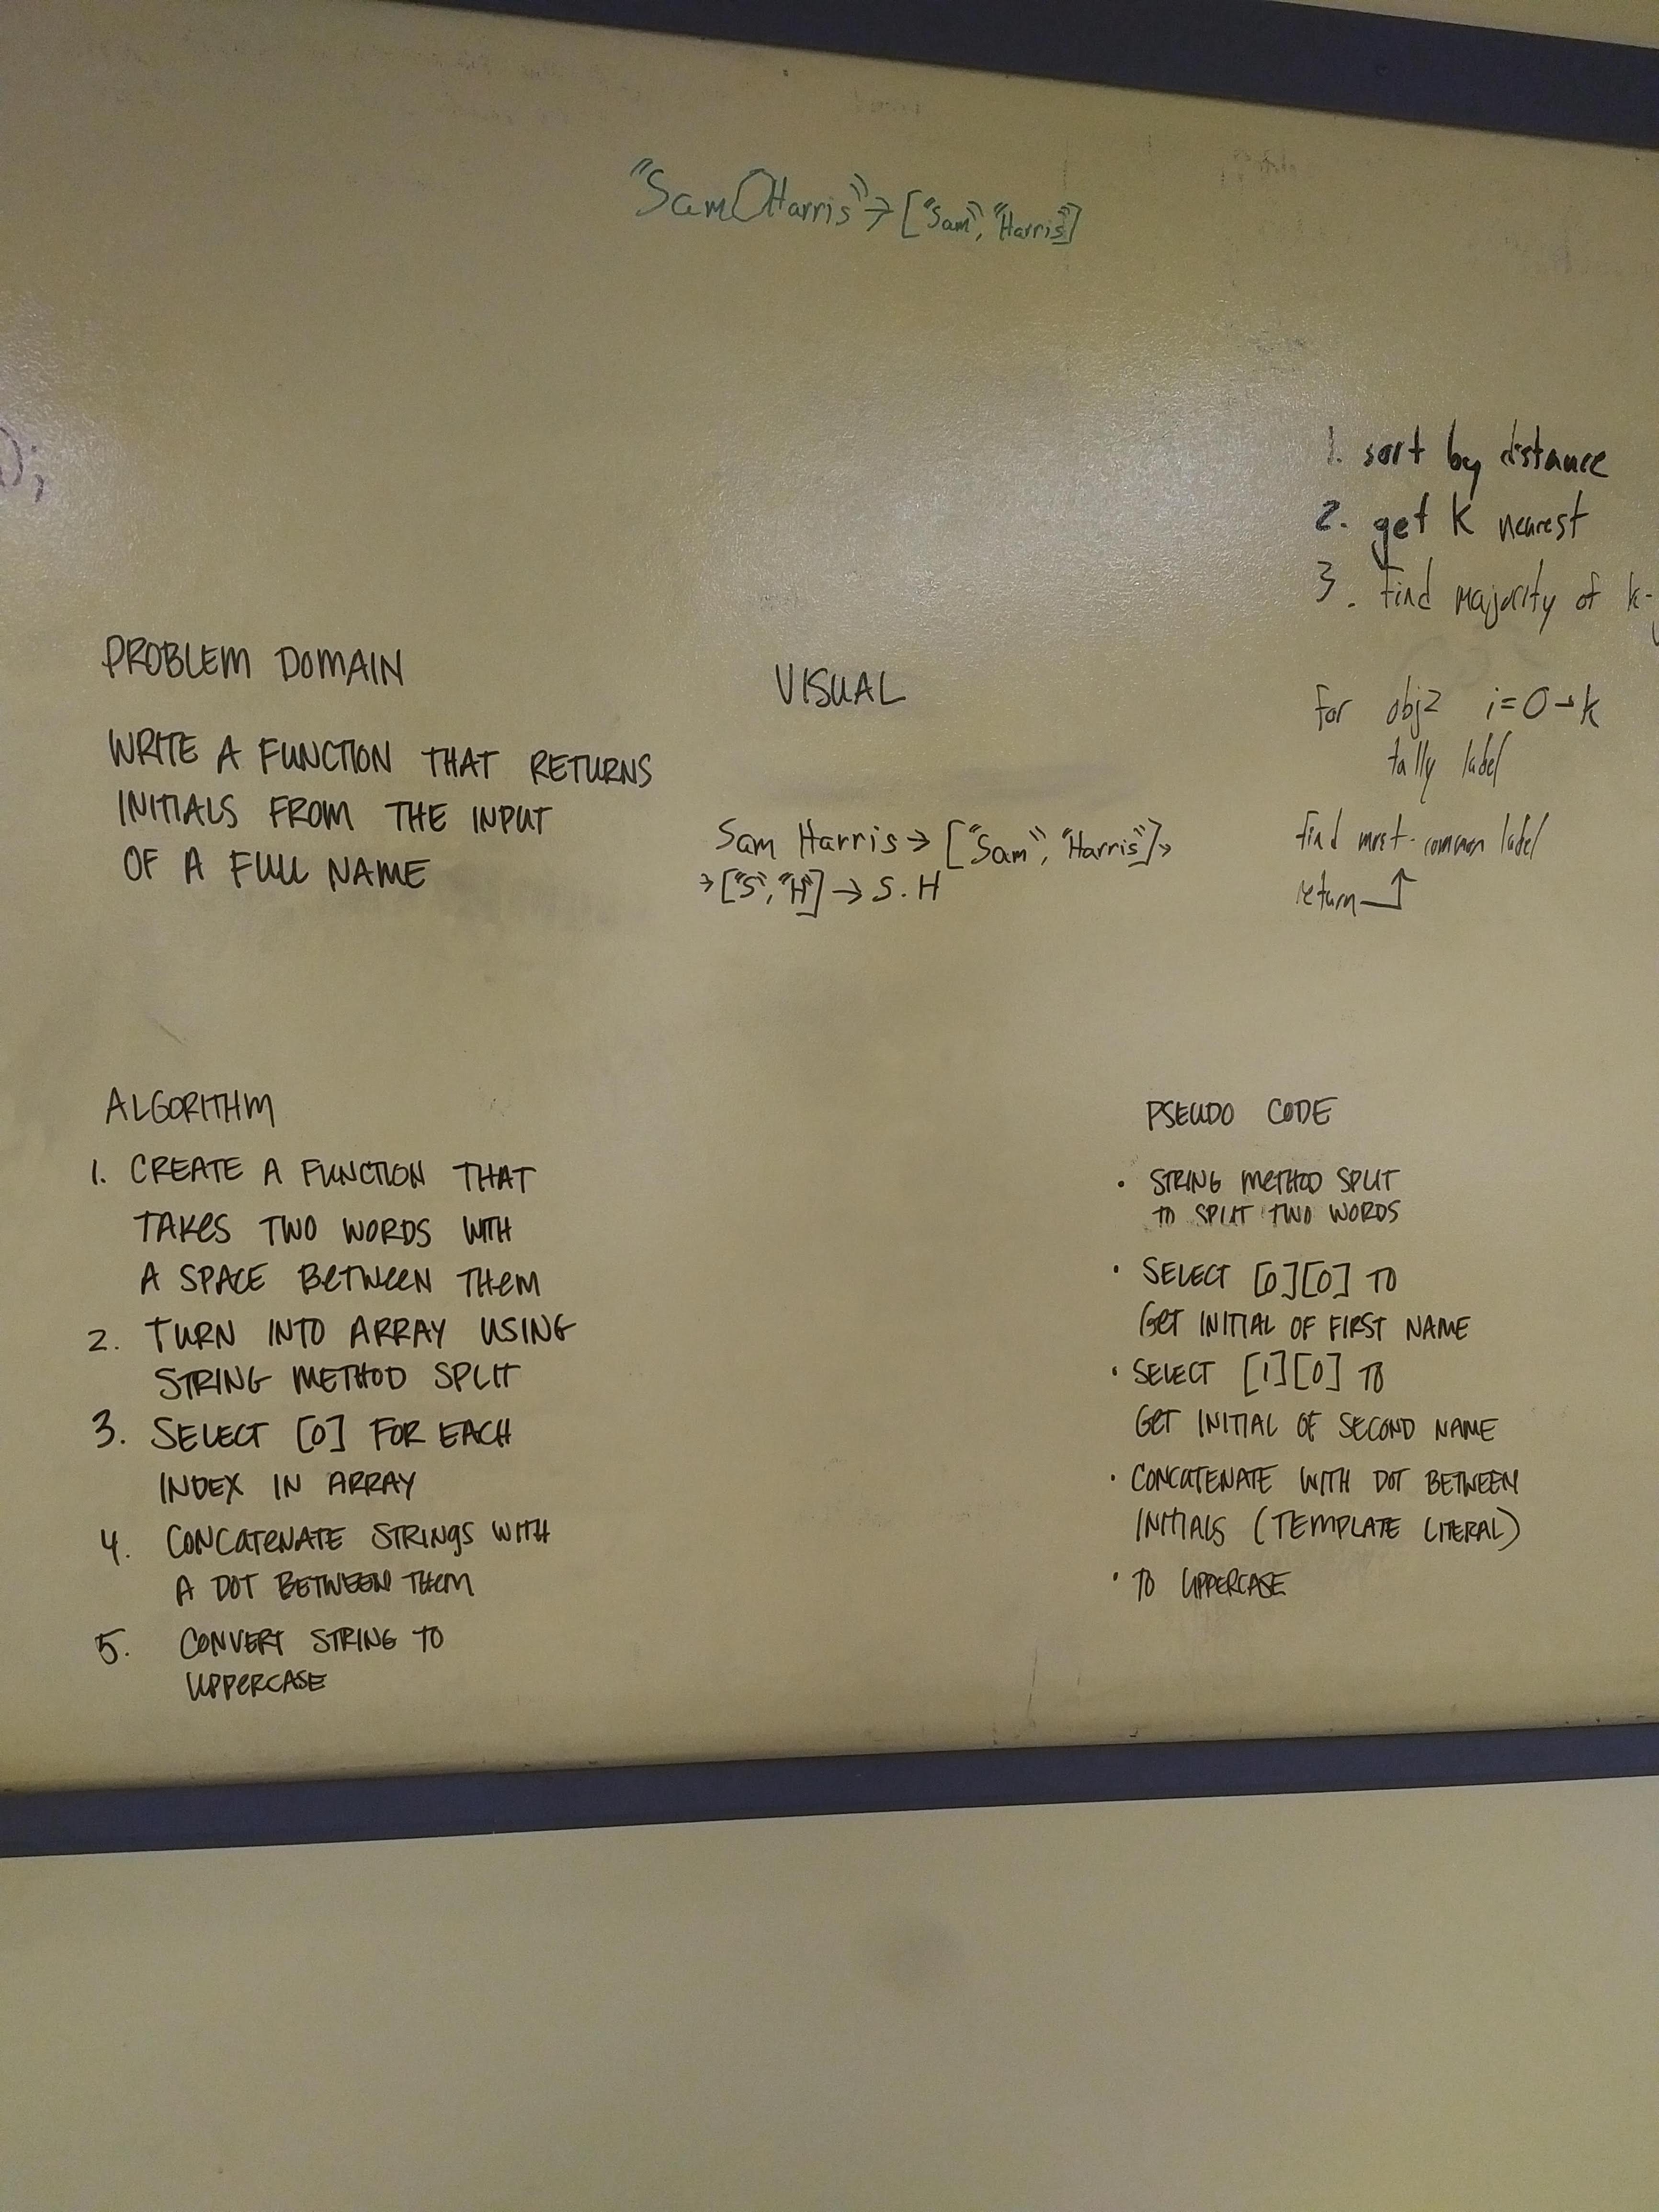 "Sam Harris" → ["Sam", "Harris"]
1. sort by distance
2. get k nearest
3. find majority of k-
PROBLEM DOMAIN
WRITE A FUNCTION THAT RETURNS
INITIALS FROM THE INPUT
OF A FULL NAME
VISUAL
Sam Harris → ["Sam", "Harris"] →
→ ["S", "H"] → S.H
for obj2 i=0→k
tally label
find most-common label
return
ALGORITHM
1. CREATE A FUNCTION THAT
TAKES TWO WORDS WITH
A SPACE BETWEEN THEM
2. TURN INTO ARRAY USING
STRING METHOD SPLIT
3. SELECT [0] FOR EACH
INDEX IN ARRAY
4. CONCATENATE STRINGS WITH
A DOT BETWEEN THEM
5. CONVERT STRING TO
UPPERCASE
PSEUDO CODE
• STRING METHOD SPLIT
TO SPLIT TWO WORDS
• SELECT [0][0] TO
GET INITIAL OF FIRST NAME
• SELECT [1][0] TO
GET INITIAL OF SECOND NAME
• CONCATENATE WITH DOT BETWEEN
INITIALS (TEMPLATE LITERAL)
• TO UPPERCASE